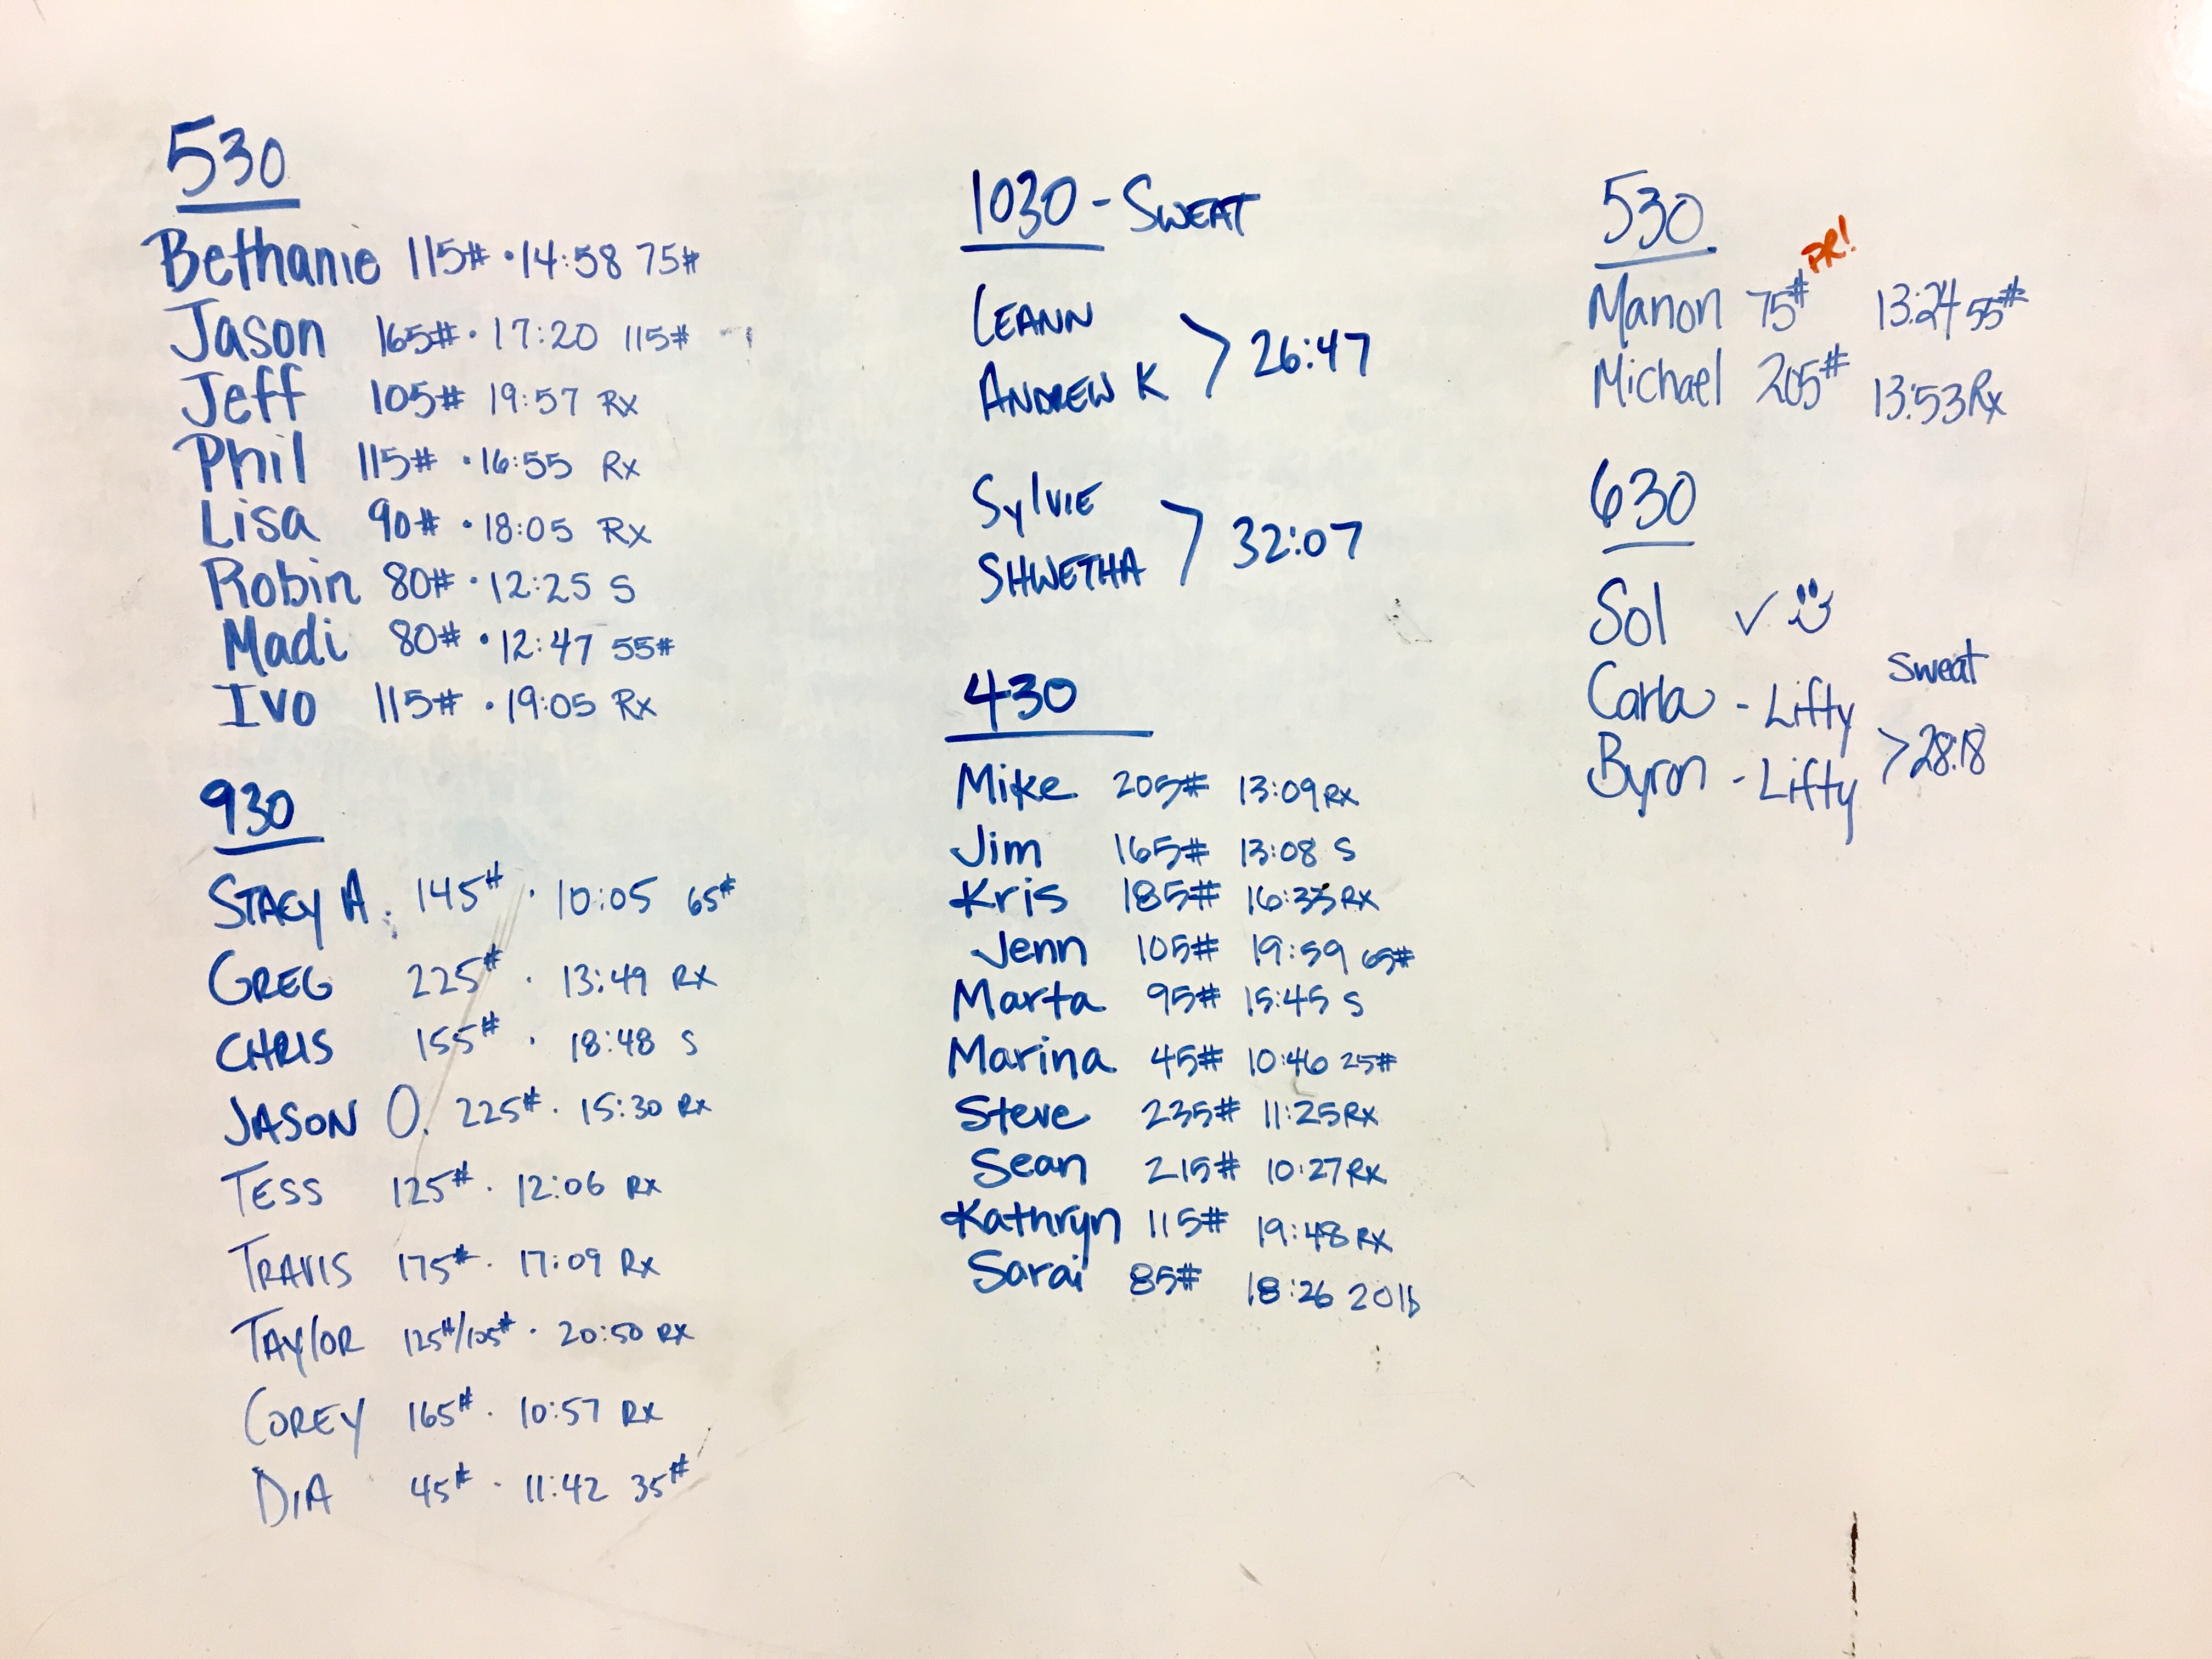 530
Bethanie 115# · 14:58 75#
Jason 165# · 17:20 115#
Jeff 105# 19:57 Rx
Phil 115# · 16:55 Rx
Lisa 90# · 18:05 Rx
Robin 80# · 12:25 S
Madi 80# · 12:47 55#
Ivo 115# · 19:05 Rx
930
STACY A. 145# · 10:05 65#
GREG 225# · 13:49 RX
CHRIS 155# · 18:48 S
JASON O. 225# · 15:30 RX
TESS 125# · 12:06 RX
TRAVIS 175# · 17:09 RX
TAYlOR 125#/105# · 20:50 RX
COREY 165# · 10:57 RX
DiA 45# · 11:42 35#
1030 - SWEAT
LEANN
ANDREW K > 26:47
SylVIE
SHWETHA > 32:07
430
Mike 205# 13:09 RX
Jim 165# 13:08 S
Kris 185# 16:33 RX
Jenn 105# 19:59 65#
Marta 95# 15:45 S
Marina 45# 10:46 25#
Steve 235# 11:25 RX
Sean 215# 10:27 RX
Kathryn 115# 19:48 RX
Sarai 85# 18:26 20lb
530
PR!
Manon 75# 13:24 55#
Michael 205# 13:53 Rx
630
Sol ✓
Sweat
Carla - Lifty
Byron - Lifty > 28:18